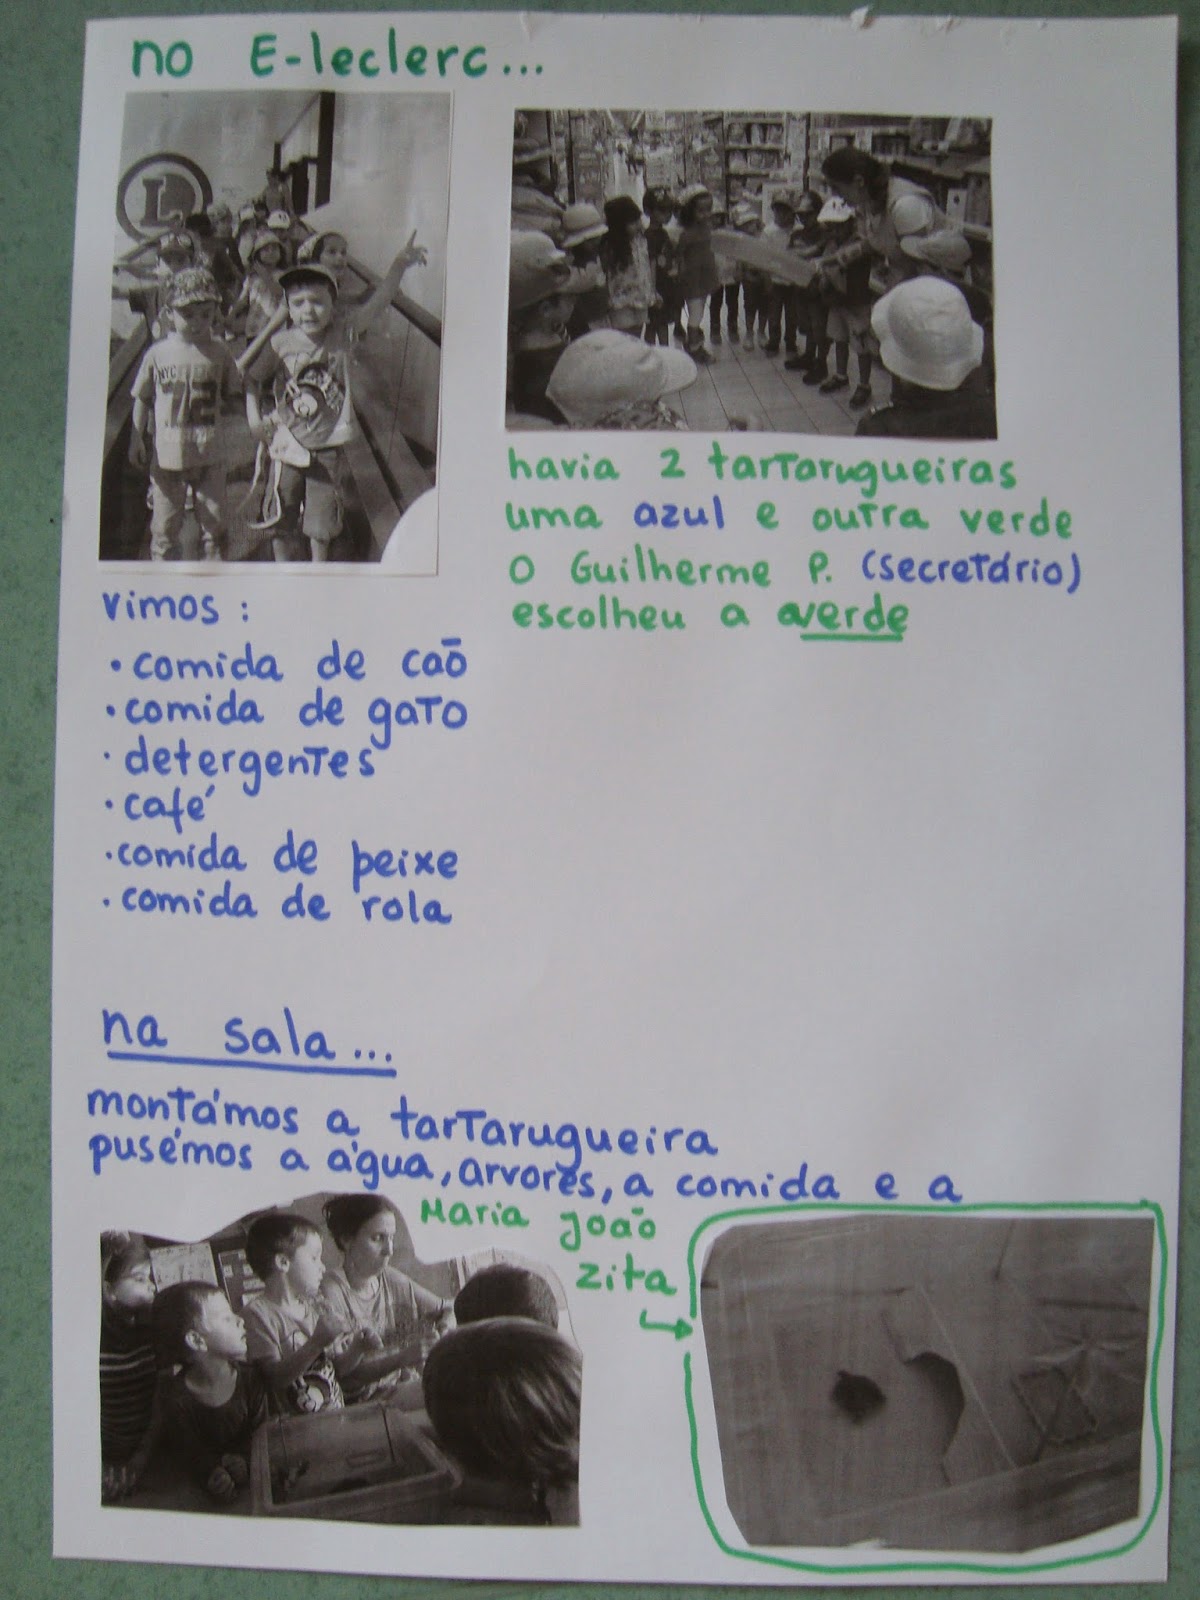 no E-leclerc...
L
NYC
72
havia 2 tartarugueiras
uma azul e outra verde
O Guilherme P. (secretário)
escolheu a verde
vimos:
• comida de caõ
• comida de gato
• detergentes
• café
• comida de peixe
• comida de rola
na sala...
montámos a tartarugueira
pusémos a água, arvores, a comida e a
Maria joaõ
zita